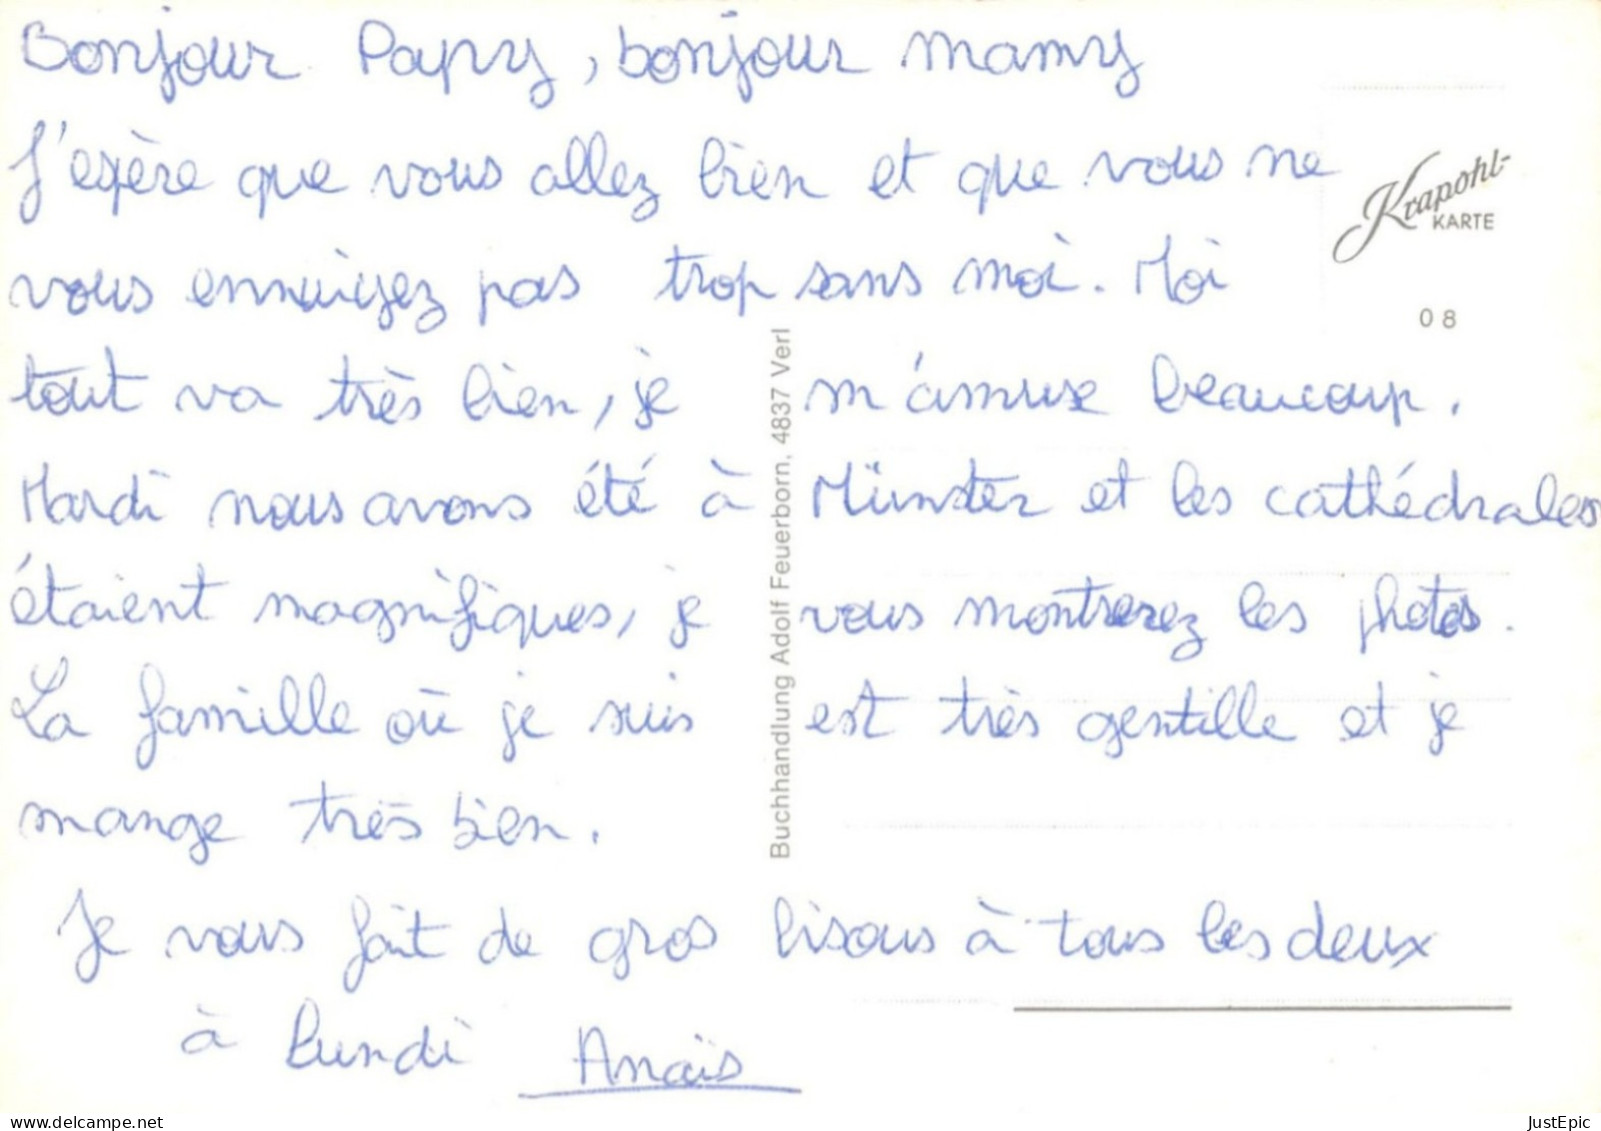 Bonjour Papy, bonjour mamy
J'espère que vous allez bien et que vous ne
vous ennuiyez pas trop sans moi. Moi
tout va très bien, je m'amuse beaucoup.
Mardi nous avons été à Münster et les cathédrales
étaient magnifiques, je vous montrerez les photos.
La famille où je suis est très gentille et je
mange très bien.
Je vous fait de gros bisous à tous les deux
à Lundi Anaïs
Krapohl-
KARTE
08
Buchhandlung Adolf Feuerborn, 4837 Verl
www.delcampe.net
JustEpic